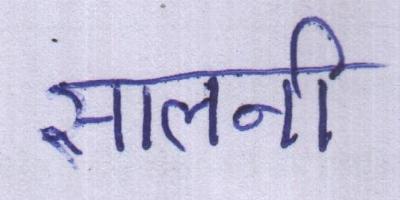 सालनी